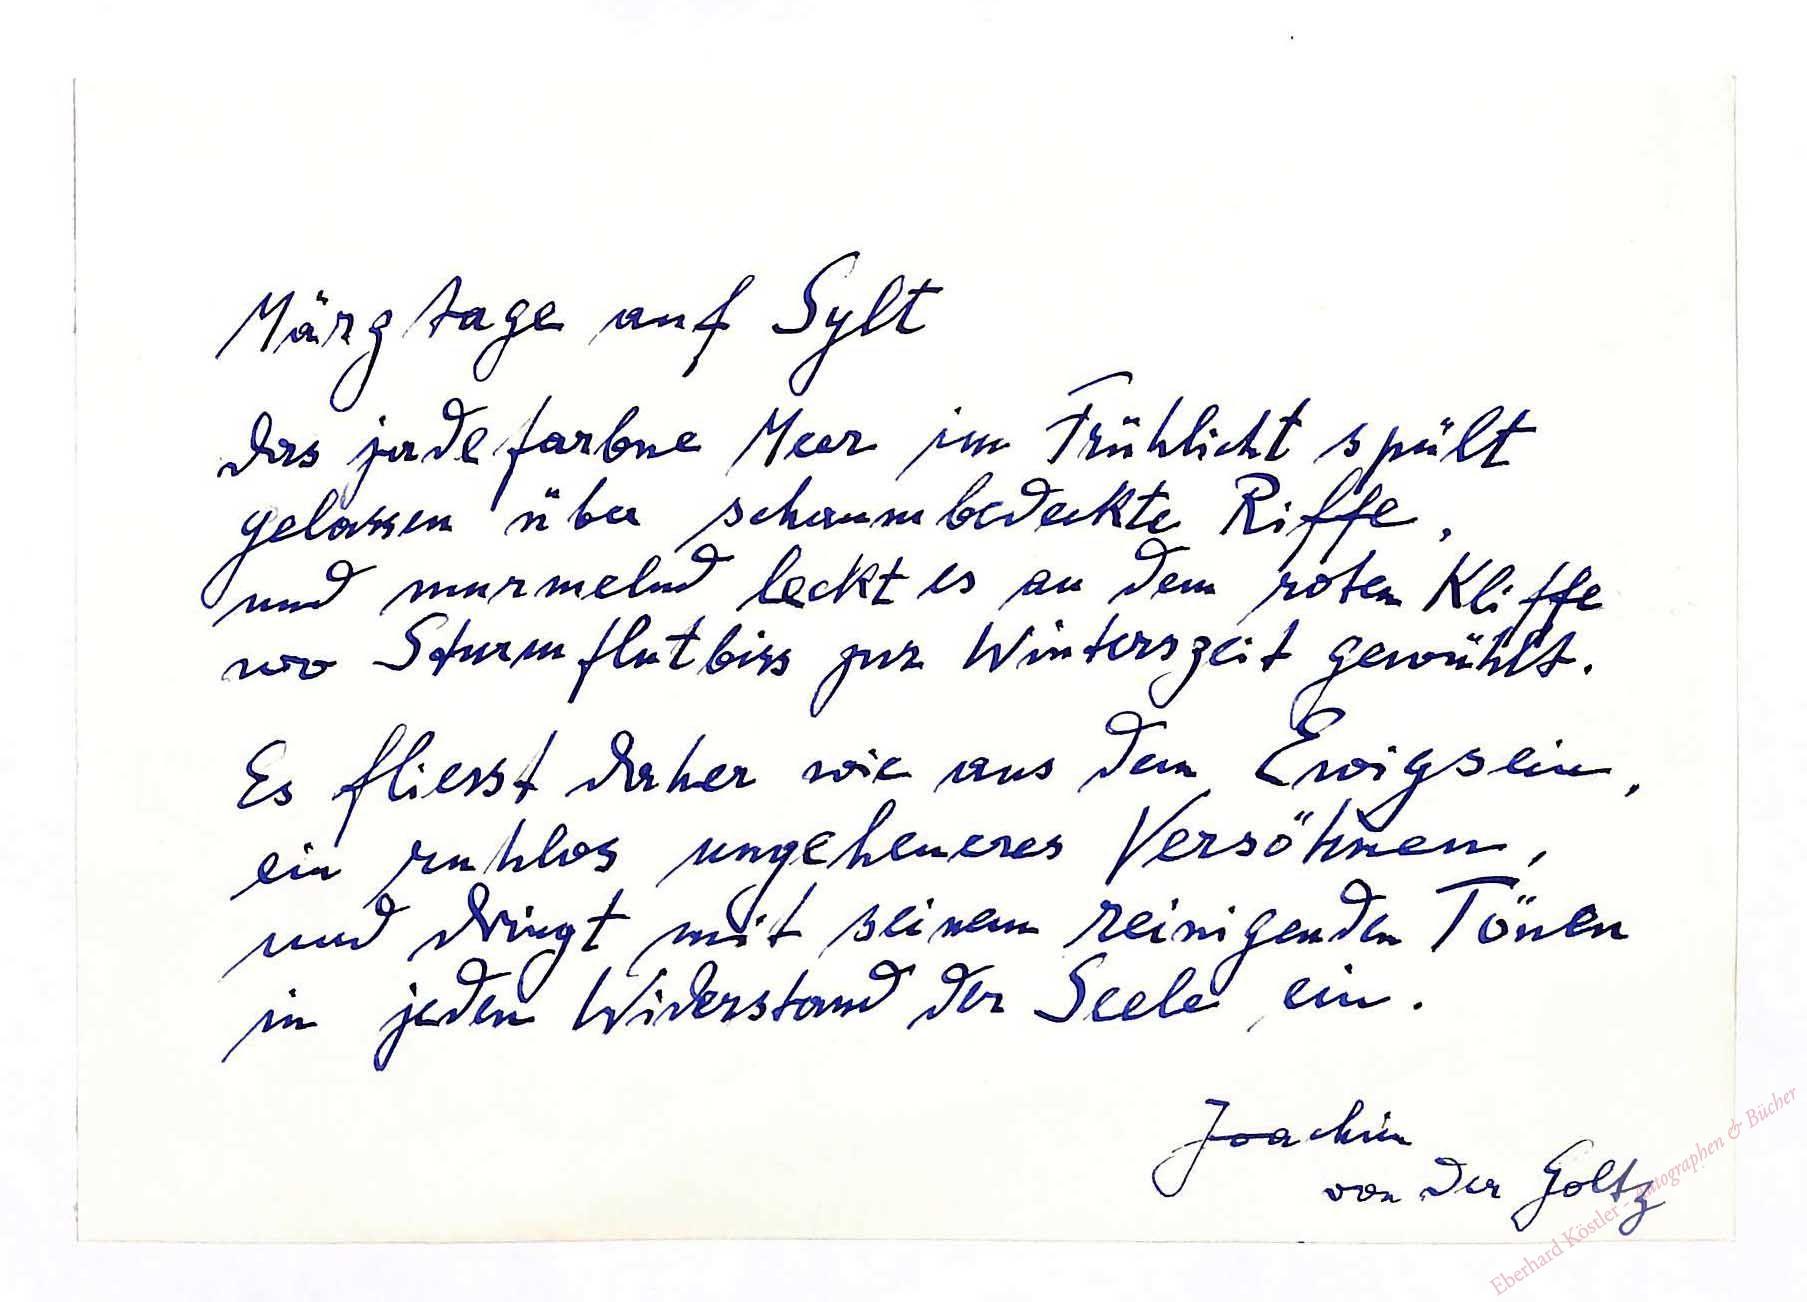 Märztage auf Sylt
das jadefarbne Meer im Frühlicht spült
gelassen über schaumbedeckte Riffe,
und murmelnd leckt es an dem roten Kliffe
wo Sturmflutbiss zur Winterszeit gewühlt.
Es fliesst daher wie aus dem Ewigsein,
ein ruhlos ungeheueres Versöhnen,
und dringt mit seinem reinigenden Tönen
in jeden Widerstand der Seele ein.
Joachim
von der Goltz
Eberhard Köstler - Autographen & Bücher